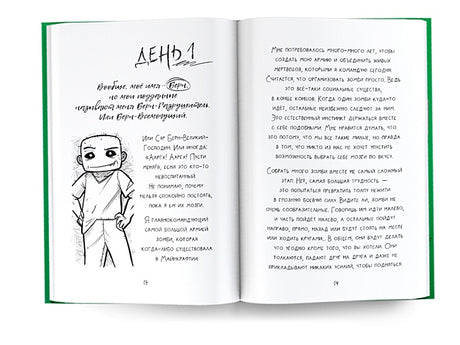 ДЕНЬ 1
Вообще, моё имя – Берн,
но мои подданные
называют меня Берн-Разрушитель.
Или Берн-Всемогущий.
Или Сэр Берн-Великий-
Господин. Или иногда:
«Аарех! Аарех! Пусти
меня!», если это кто-то
невоспитанный.
Не понимаю, почему
нельзя спокойно постоять,
пока я ем их мозги.
Я главнокомандующий
самой большой армией
зомби, которая
когда-либо существовала
в Майнкрафтии.
13
Мне потребовалось много-много лет, чтобы
создать мою армию и объединить живых
мертвецов, которыми я командую сегодня.
Считается, что организовать зомби просто. Ведь
это всё-таки социальные существа,
в конце концов. Когда один зомби куда-то
идёт, остальные тянутся вслед за ним.
Это естественный инстинкт держаться вместе
с себе подобными. Мне нравится думать, что
это потому, что мы все такие милые, но правда
в том, что никто из нас не хочет упустить
возможность выбрать себе мозги по вкусу.
Собрать много зомби вместе не самый сложный
этап. Нет, самая большая трудность –
это попытаться превратить толпу нежити
в грозную боевую силу. Видите ли, зомби не
очень сообразительные. Говоришь им идти налево,
и часть пойдёт налево, а остальные пойдут
направо, прямо, назад или будут стоять на месте
или ходить кругами. В общем, они будут делать
что угодно кроме того, что вы хотели. Они
толкаются, падают друг на друга и даже не
прикладывают никаких усилий, чтобы подняться.
14